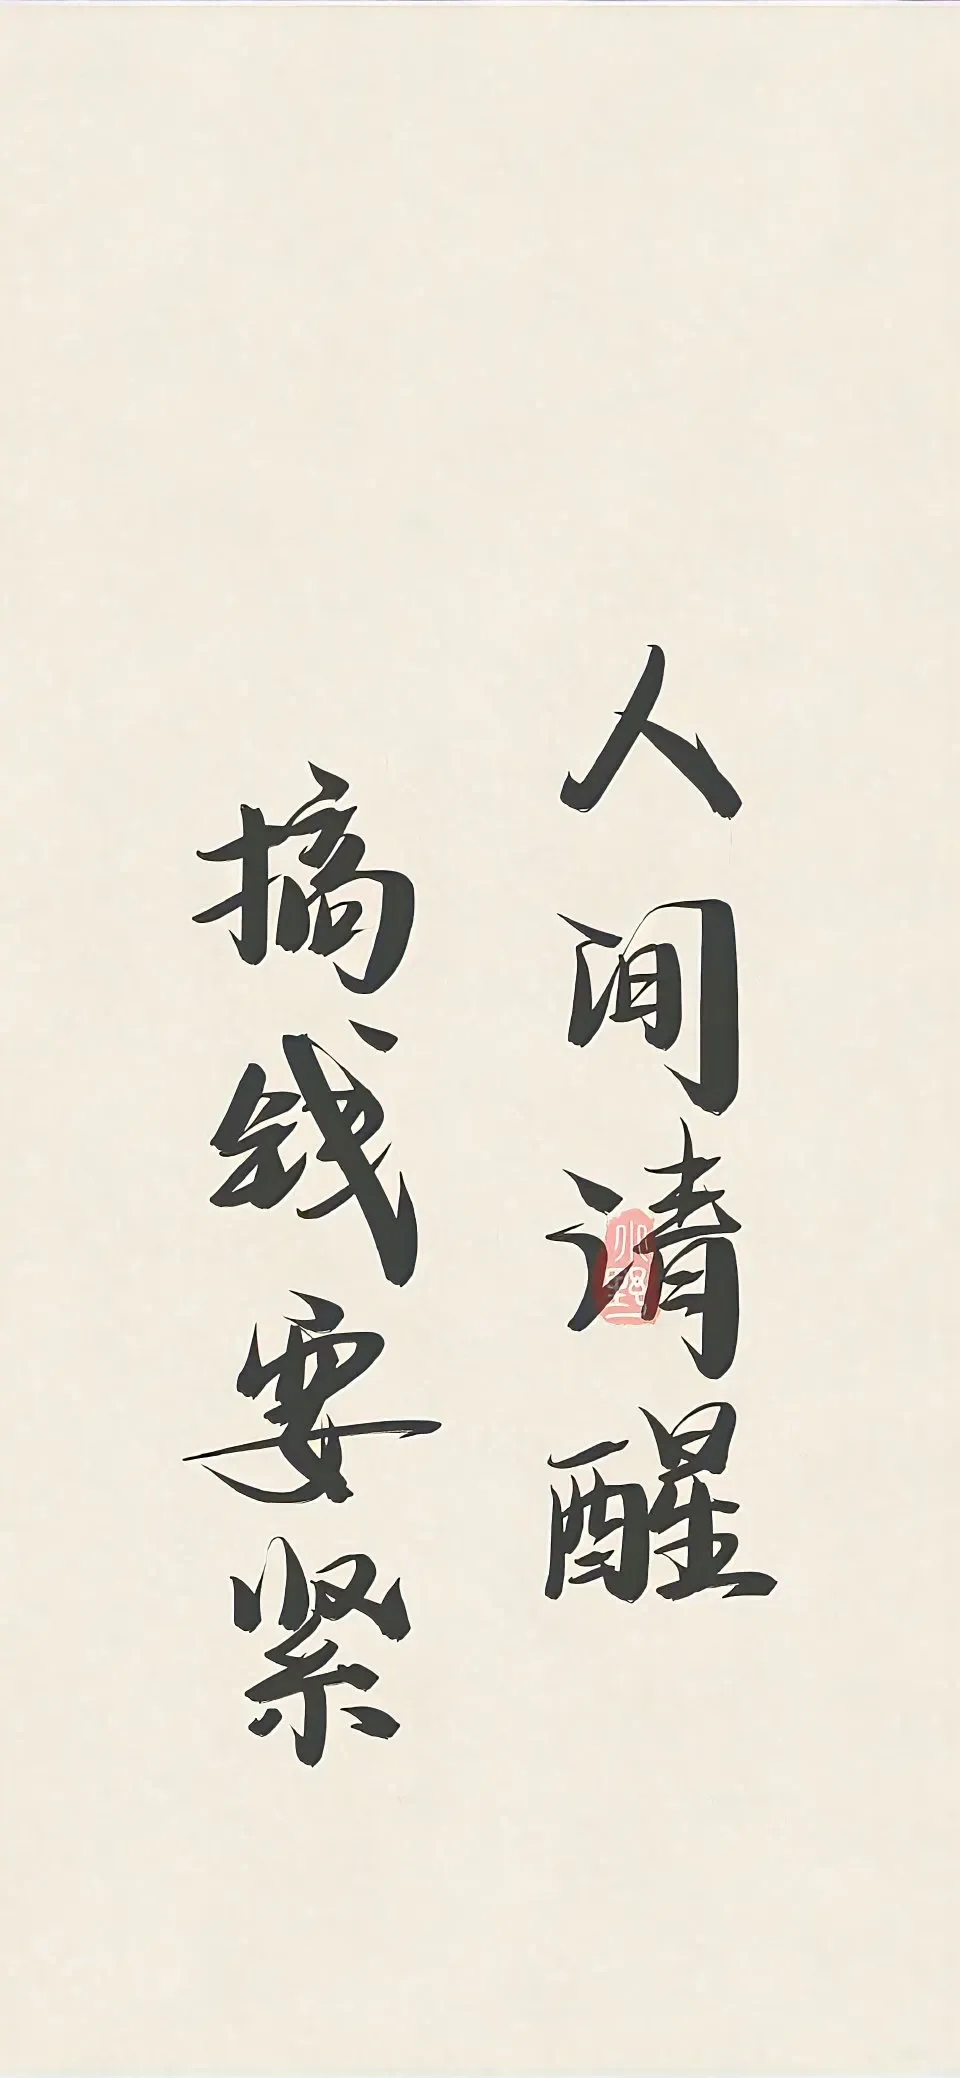 人间清醒
摘钱要紧